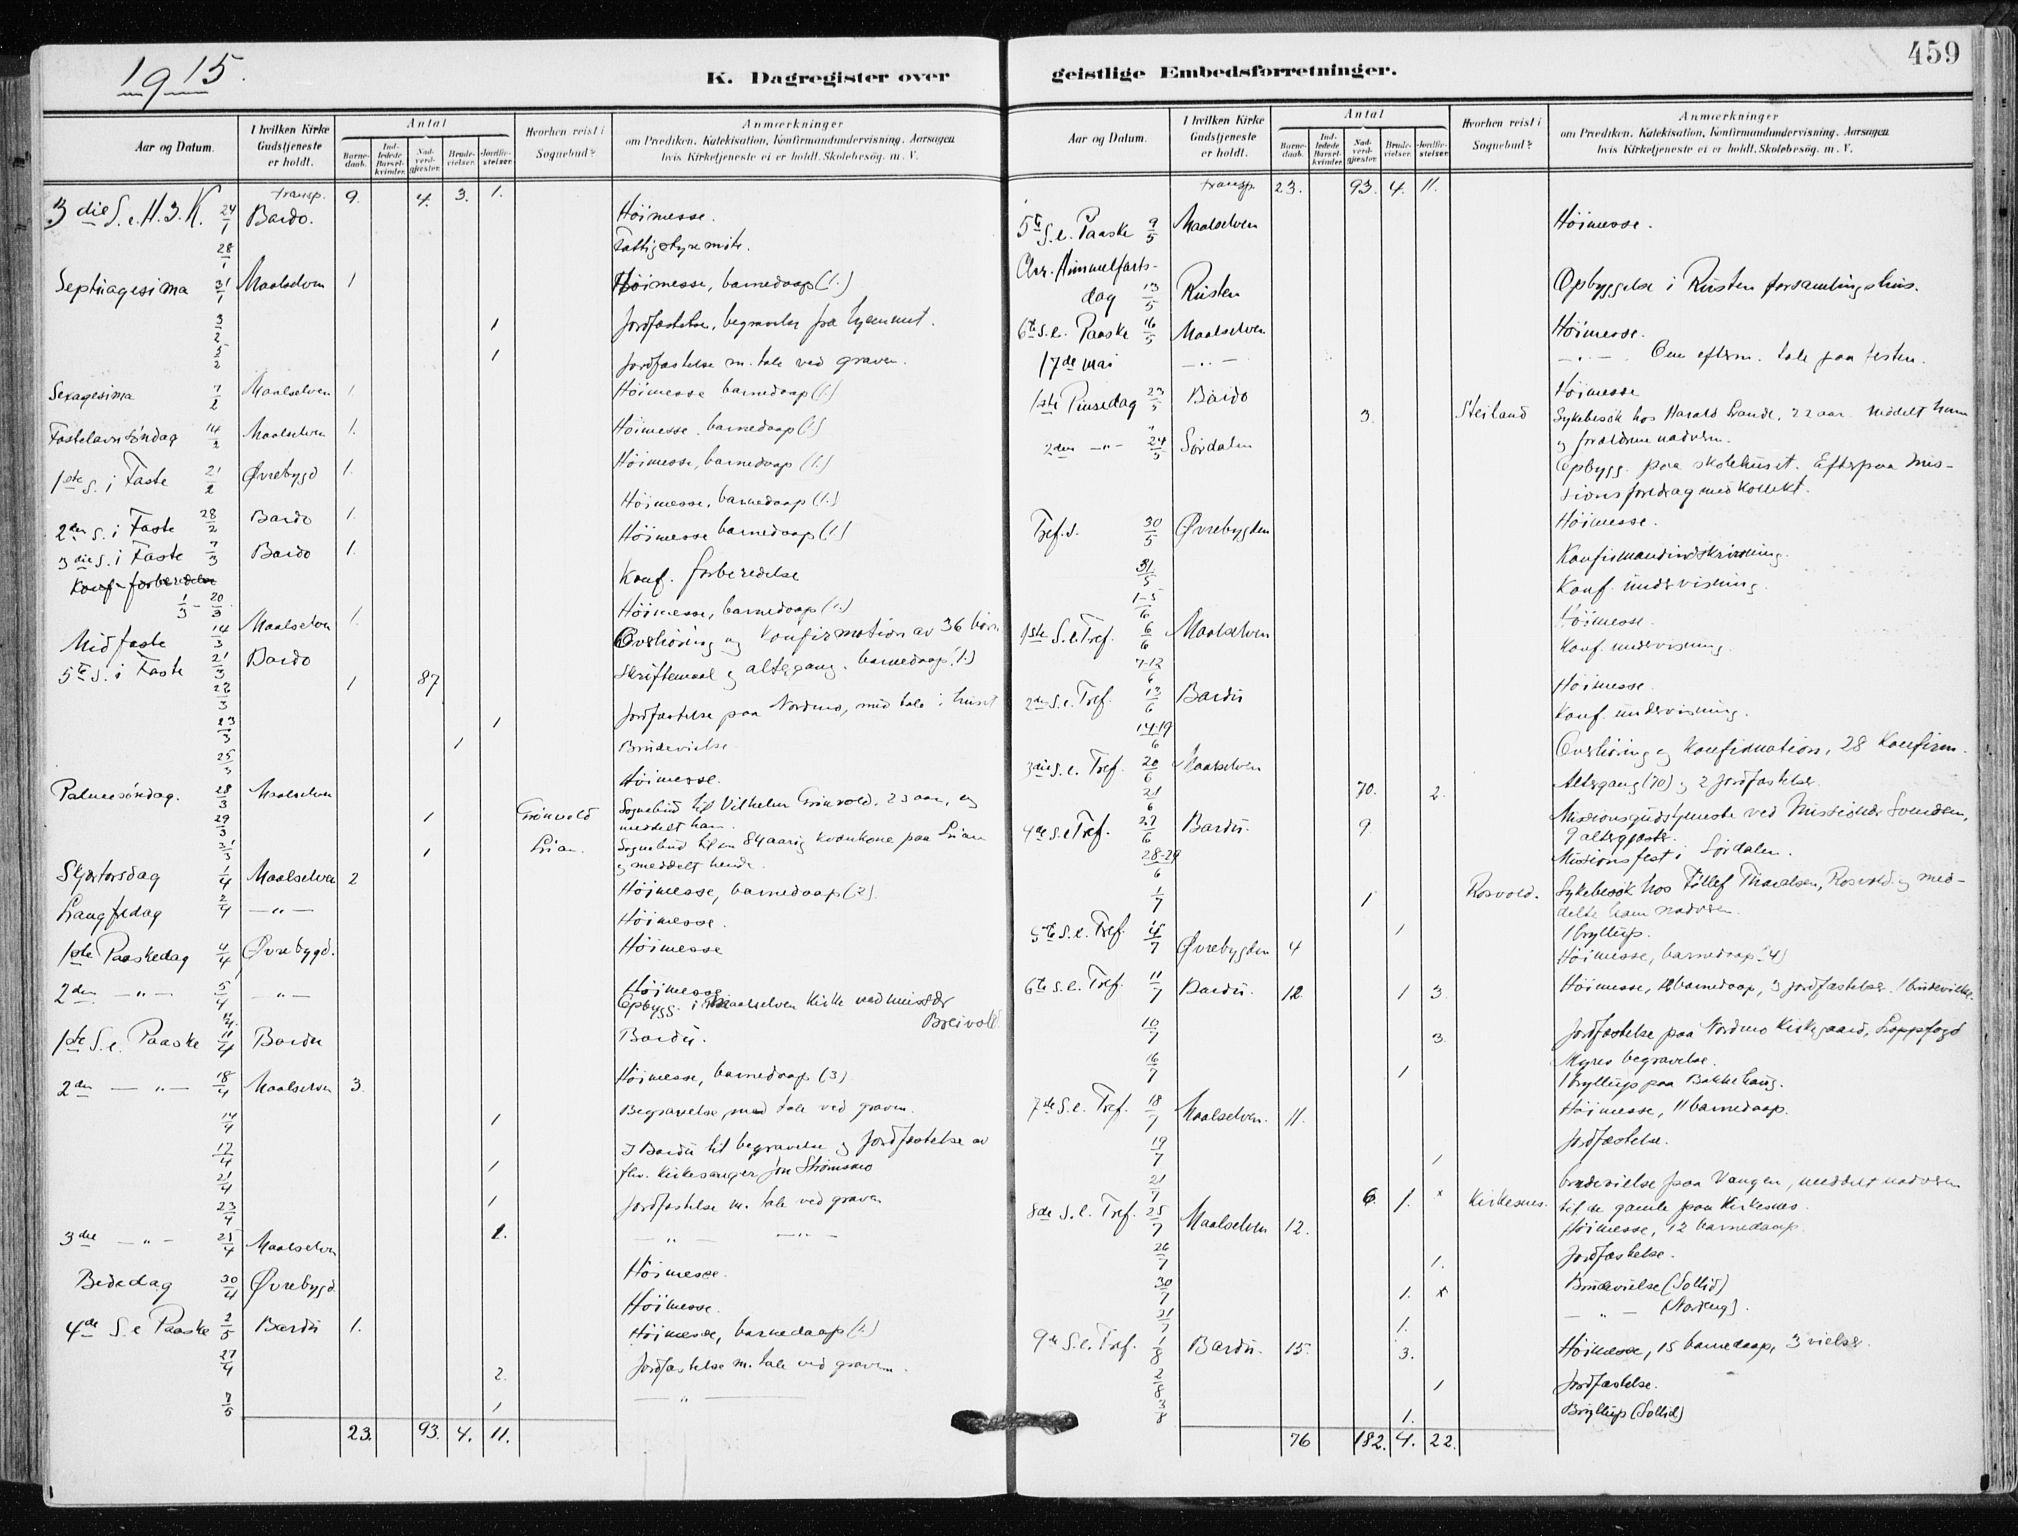 1915.
K. Dagregister over
Aar og Datum.
I hvilken Kirke Gudstjeneste er holdt.
Antal
Barne-daab.
Ind-ledede Barsel-kvinder.
Nad-verd-gjæster.
Brude-vielser.
Jordfæ-stelser.
Hvorhen reist i Sognebud?
Anmerkninger
om Prædiken, Katekisation, Konfirmandundervisning, Aarsagen
hvis Kirketjeneste ei er holdt, Skolebesøg, m. V.
transp. 9. 4. 3. 1.
3die S. e. H. 3. K. 24/1 Bardo. Höimesse.
28/1 Fattigstyremöte.
Septuagesima 31/1 Maalselven 1 Höimesse, barnedaap (1.)
3/2 1 Jordfæstelse, begravelse fra hjemmet.
5/2 1 Jordfæstelse m. tale ved graven.
Sexagesima 7/2 Maalselven 1. Höimesse barnedaap (1.)
Fastelavnsöndag 14/2 Maalselven 1. Höimesse. barnedaap (1.)
1ste S. i Faste 21/2 Øvrebygd 1. Höimesse, barnedaap (1.)
2den S. i Faste 28/2 Bardo 1. Höimesse, barnedaap (1.)
3die S. i Faste 7/3 Bardo 1. Höimesse barnedaap (1.)
Konf. forberedelse
1/3 - 20/3 Konf. forberedelse
Midfaste 14/3 Maalselven 1. Höimesse, barnedaap (1.)
5te S. i Faste 21/3 Bardo Overhöring og Konfirmation av 36 børn
1 87 Skriftemaal og altergang. barnedaap (1.)
23/3 1 Jordfæstelse paa Nordmo, med tale i huset
25/3 1 Brudevielse.
Palmesöndag. 28/3 Maalselven Höimesse.
29/3 1 Grönvold Sognebud til Vilhelm Grönvold, 23 aar, og
meddelt ham.
31/3 1 Lian. Sognebud til en 84 aarig kvænkone paa Lian
og meddelt hende.
Skjærtorsdag 1/4 Maalselven 2 Höimesse, barnedaap (2).
Langfredag 2/4 — " — Höimesse.
1ste Paaskedag 4/4 Øvrebygd. Höimesse
2den — " — 5/4 — " — Höimesse
Opbygg. i Maalselven Kirke ved missær
Breivold.
1ste S. e. Paaske 11/4 Bardu Bardu.
2den — " — 18/4 Maalselven 3. Höimesse, barnedaap (3)
14/4 1 Begravelse, med tale ved graven.
17/4 1 I Bardu til begravelse og Jordfæstelse av
fhv. Kirkesanger Jon Strömsmo
21/4 1 Jordfæstelse m. tale ved graven
23/4 1. — " — — " —
3die — " — 25/4 Maalselven Höimesse.
Bededag 30/4 Øvrebygd. Höimesse.
4de S. e Paaske 2/5 Bardu 1. Höimesse, barnedaap (1.)
27/4 2. Jordfæstelse m. tale ved graven.
7/5 1 — " —
23. 93. 4. 11.
459
geistlige Embedsforretninger.
Aar og Datum.
I hvilken Kirke Gudstjeneste er holdt.
Antal
Barne-daab.
Ind-ledede Barsel-kvinder.
Nad-verd-gjæster.
Brude-vielser.
Jordfæ-stelser.
Hvorhen reist i Sognebud?
Anmerkninger
om Prædiken, Katekisation, Konfirmandundervisning, Aarsagen
hvis Kirketjeneste ei er holdt, Skolebesög, m. V.
transp. 23. 93. 4. 11.
5te S. e. Paaske 9/5 Maalselven Höimesse.
Chr. Himmelfarts-
dag 13/5 Rusten Opbyggelse i Rusten forsamlingshus.
6te S. e. Paaske 16/5 Maalselven Höimesse.
17de mai — " — — " — . Om efterm. tale paa festen.
1ste Pinsedag 23/5 Bardo Höimesse
3. Steiland Sykebesök hos Harald Strande, 22 aar. meddelt ham
og forældrene nadveren.
2den — " — 24/5 Sördalen Opbygg. paa skolehuset. Efterpaa Mis-
sionsforedrag med kollekt.
Tref. S. 30/5 Øvrebygden Höimesse.
31/5 Konfirmandindskrivning.
1-5/6 Konf. undervisning.
1ste S. e Tref. 6/6 Maalselven Höimesse.
7-12/6 Konf. undervisning.
2den S. e. Tref. 13/6 Bardu Höimesse.
14-19/6 Konf. undervisning.
3die S. e. Tref. 20/6 Maalselven Overhöring og Konfirmation, 28 Konfirm.
21/6 70. 2. Altergang (70) og 2 Jordfæstelser
4de S. e Tref. 27/6 Bardu. 9 Missionsgudstjeneste ved Missionær Svendsen,
9 altergjæster.
28-29/6 Missionsfest i Sördalen.
1/7 1 Rosvold. Sykebesök hos Tollef Thoralsen, Rosvold og med-
delte ham nadveren.
1 1 bryllup.
5te S. e. Tref. 4/7 Øvrebygden 4 Höimesse, barnedaap (4)
6te S. e. Tref. 11/7 Bardu. 12. 1 3. Höimesse, 12 barnedaap, 3 jordfæstelser. 1 brudevielse.
10/7 3. Jordfæstelse paa Nordmo Kirkegaard, Lappfogd
Myres begravelse.
16/7 1 1 bryllup paa Bakkehaug.
7de S. e. Tref. 18/7 Maalselven. 11. Höimesse, 11 barnedaap.
19/7 1 Jordfæstelse.
21/7 6 1. x Kirkesnes. brudevielse paa Vangen, meddelt nadveren
til de gamle paa Kirkesnes.
8de S. e. Tref. 25/7 Maalselven 12. Höimesse, 12 barnedaap.
26/7 1. Jordfæstelse.
30/7 1. x Brudevielse (Sollid)
1. — " — (Nordeng).
9de S. e. Tref. 1/8 Bardu. 15. 3. Höimesse, 15 barnedaap, 3 vielser.
2/8 1 Jordfæstelse.
3/8 1. Bryllup (Sollid)
76 182. 4. 22.